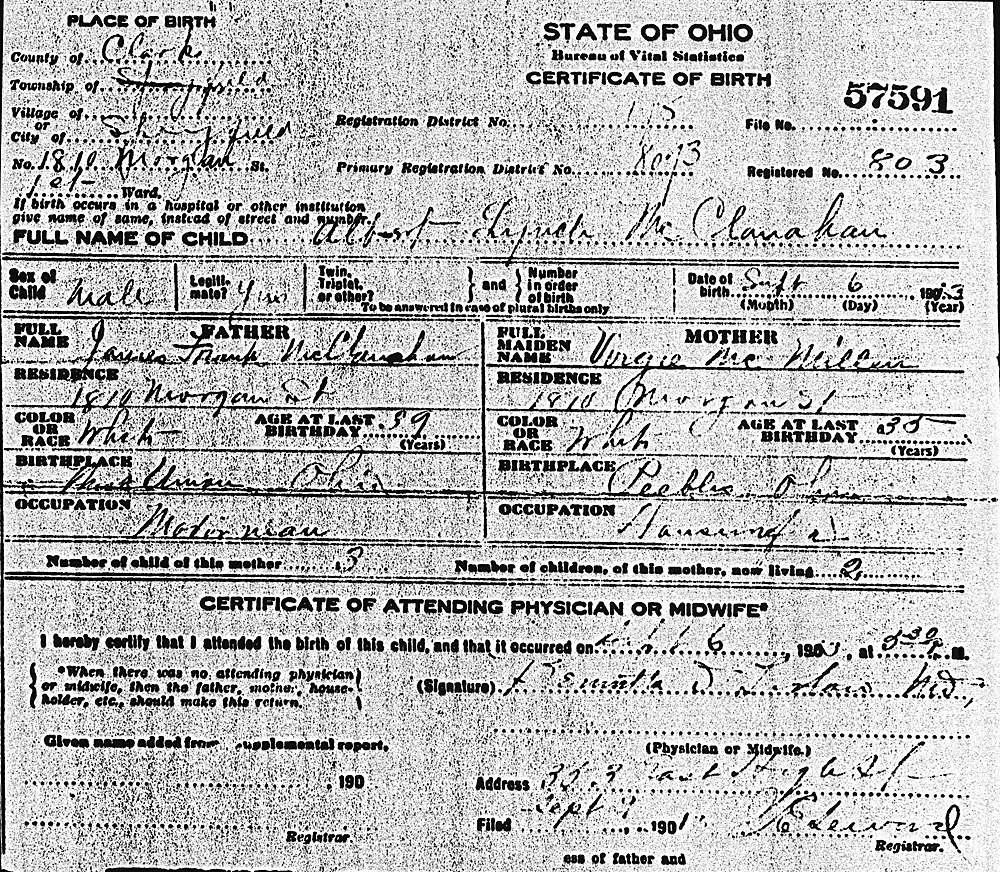 PLACE OF BIRTH
County of Clark
Township of
Village of
or
City of Springfield
No. 1810 Morgan St.
1st Ward.
If birth occurs in a hospital or other institution
give name of same, instead of street and number.
STATE OF OHIO
Bureau of Vital Statistics
CERTIFICATE OF BIRTH
57591
Registration District No. 115
File No.
Primary Registration District No. 8073
Registered No. 803
FULL NAME OF CHILD Albert Lynch Mc Clanahan
Sex of Child Male
Legitimate? Yes
Twin, Triplet, or other?
and
Number in order of birth
To be answered in case of plural births only
Date of birth Sept 6
(Month) (Day) (Year)
FATHER
FULL NAME James Frank McClanahan
RESIDENCE
1810 Morgan St
COLOR OR RACE White
AGE AT LAST BIRTHDAY 39
(Years)
BIRTHPLACE
Union Ohio
OCCUPATION
Motorman
MOTHER
FULL MAIDEN NAME Virgie Mc Millen
RESIDENCE
1810 Morgan St
COLOR OR RACE White
AGE AT LAST BIRTHDAY 35
(Years)
BIRTHPLACE Peebles Ohio
OCCUPATION
Housewife
Number of child of this mother 3
Number of children, of this mother, now living 2
CERTIFICATE OF ATTENDING PHYSICIAN OR MIDWIFE*
I hereby certify that I attended the birth of this child, and that it occurred on Sept 6, 190 , at 5 30 M.
*When there was no attending physician
or midwife, then the father, mother, house-
holder, etc., should make this return.
(Signature) M.D.,
(Physician or Midwife.)
Given name added from supplemental report,
, 190
Registrar.
Address 353 East High St
Filed Sept , 190
Registrar.
ess of father and